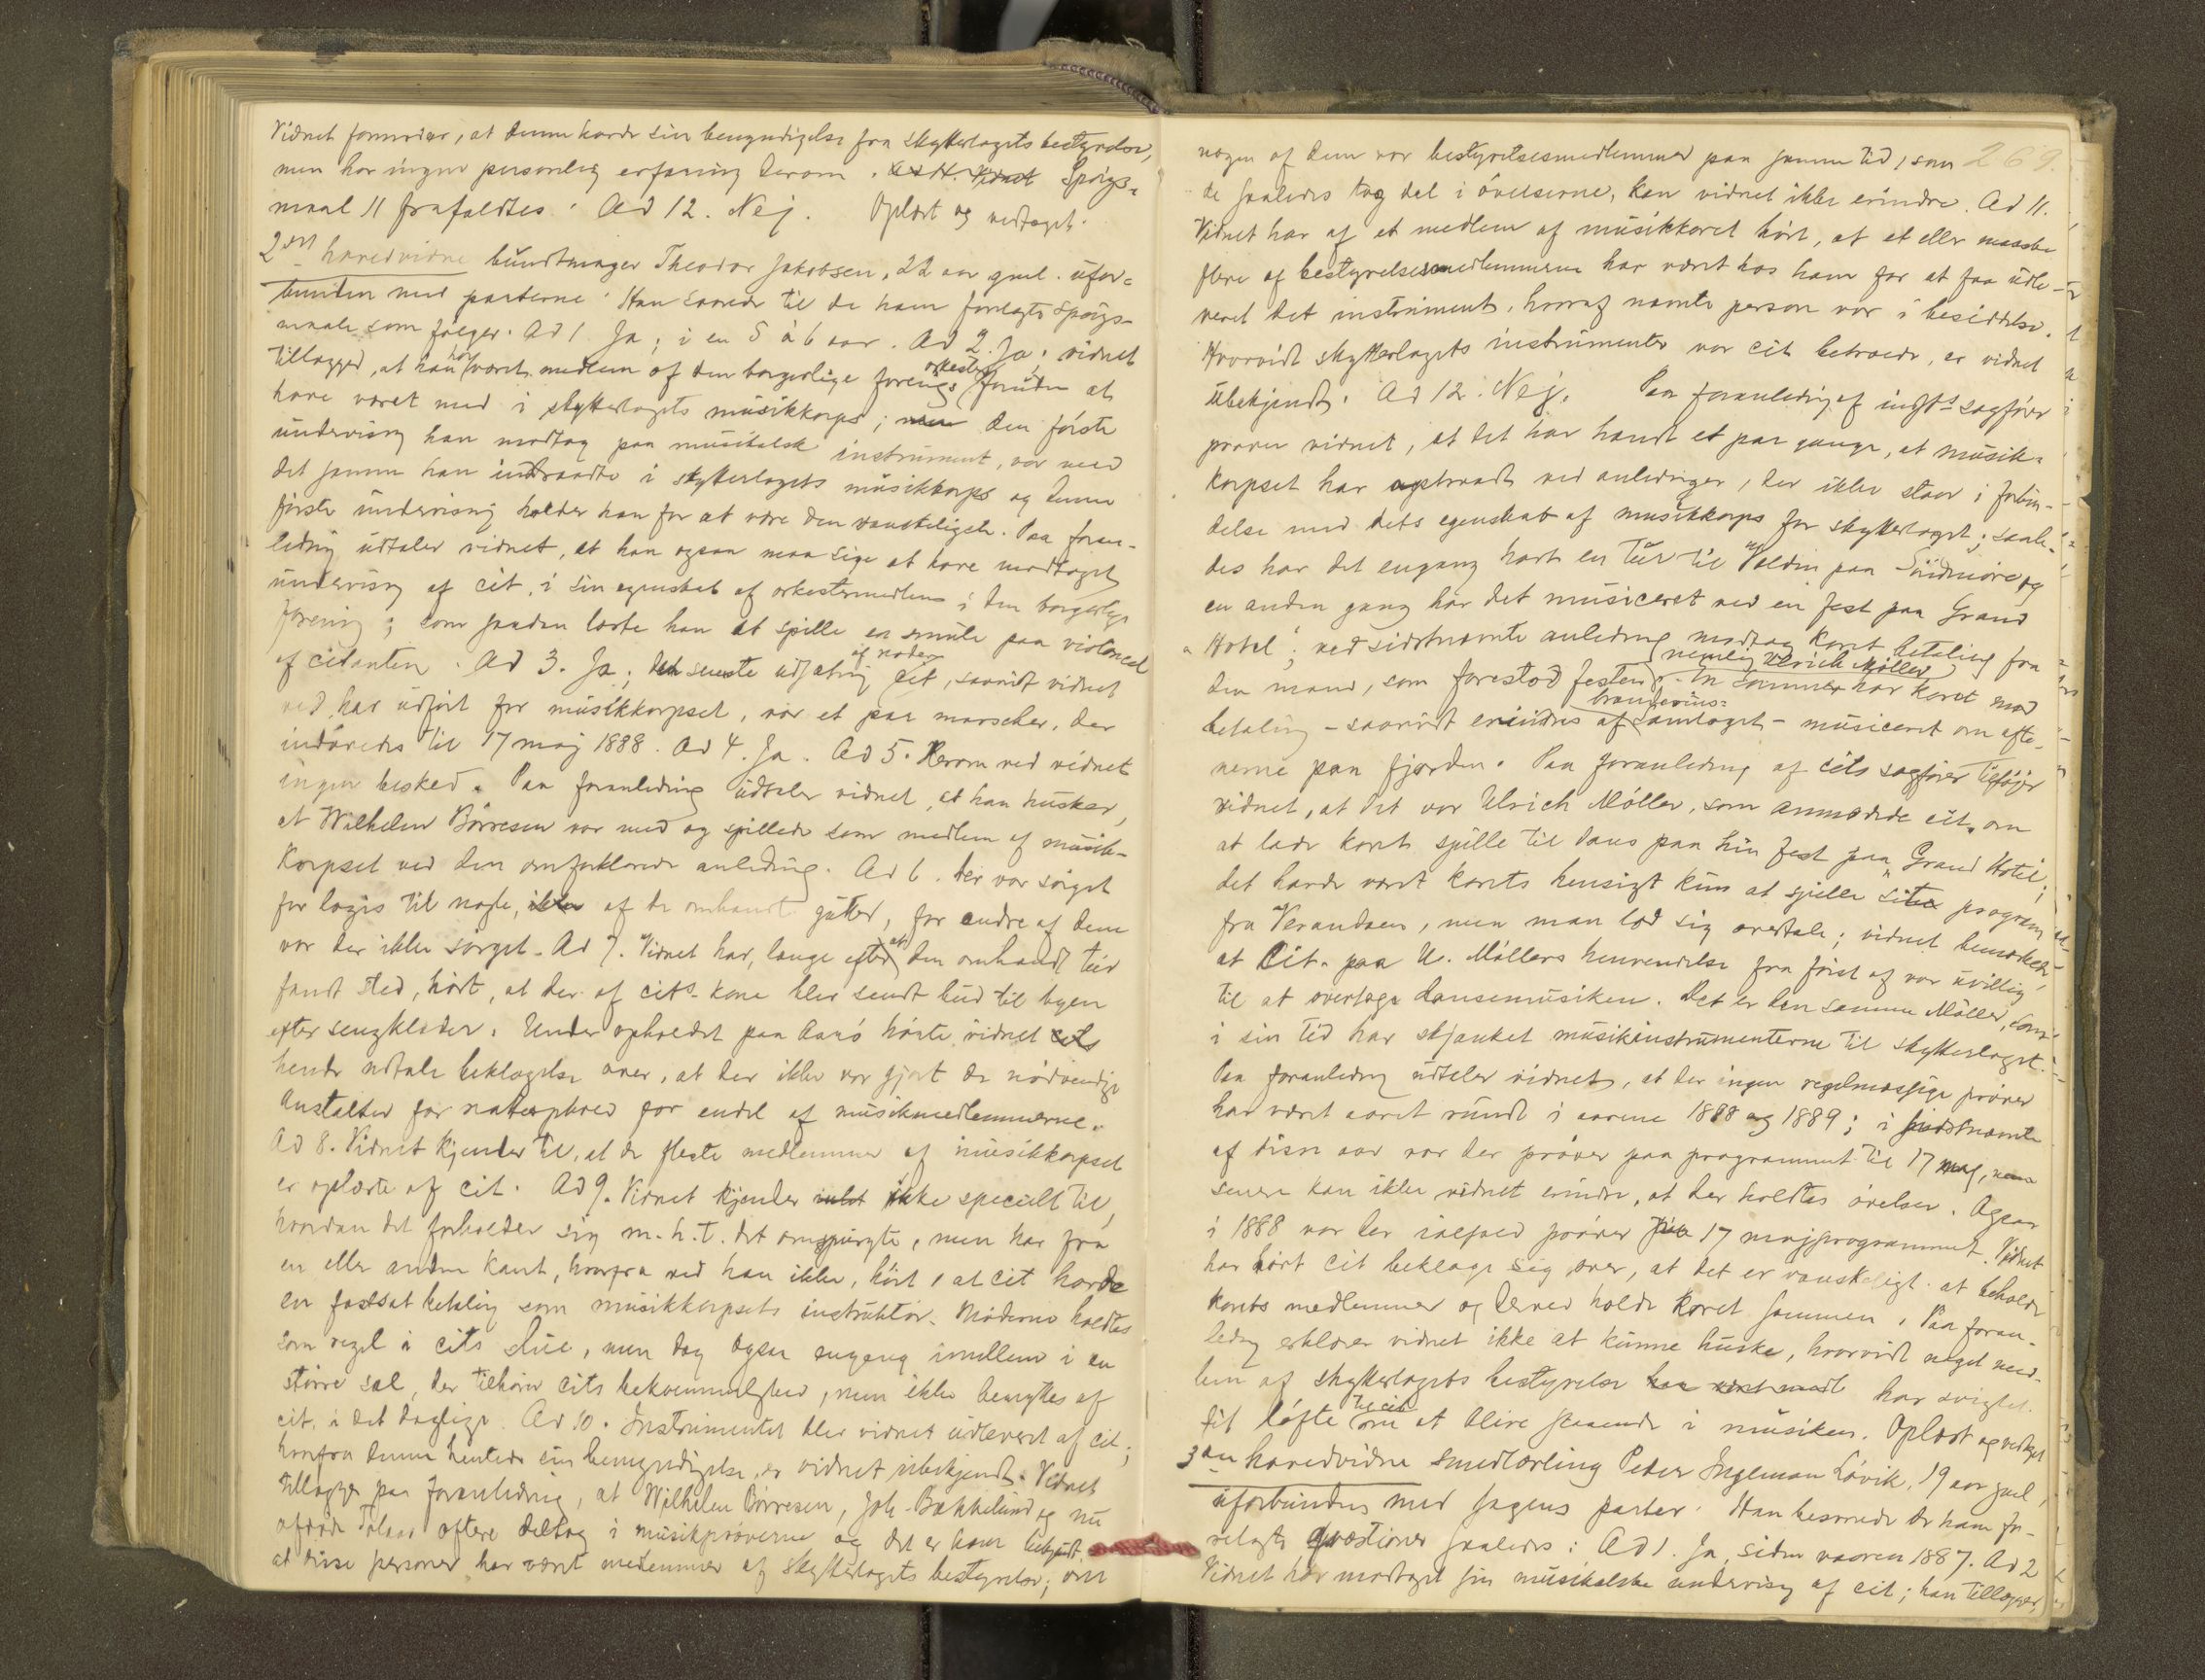 Vidnet formoder, at denne havde sin bemyndigelse fra skytterlagets bestyrelse,
men har ingen personlig erfaring derom. Spörgs=
maal 11 frafaldtes. Ad 12. Nej. Oplæst og vedtaget.
2det hovedvidne bundtmager Theodor Jakobsen, 22 aar gml. ufor=
bunden med parterne. Han svarede til de ham forelagte spörgs-
maale som fölger. Ad 1 Ja; i en 5 à 6 aar. Ad 2. Ja; vidnet
tillægger, at han har været medlem af den borgerlige forenings orkester foruden at
have været med i skytterlagets musikkorps; den förste
undervisning han modtog paa musikalsk instrument, var ved
det samme han indtraadte i skytterlagets musikkorps og denne
förste undervisning holder han for at være den vanskeligste. Paa foran-
ledning udtaler vidnet, at han ogsaa maa sige at have modtaget
undervisning af cit. i sin egenskab af orkestermedlem i den borgerlige
forening; som saadan lærte han at spille en smule paa violoncel
af citanten. Ad 3. Ja; den seneste udsætning af noder cit, saavidt vidnet
ved, har udfört for musikkorpset, var et par marscher, der
indövedes til 17 maj 1888. Ad 4. Ja. Ad 5. Herom ved vidnet
ingen besked. Paa foranledning udtaler vidnet, at han husker,
at Wilhelm Börresen var med og spillede som medlem af musik-
korpset ved den omforklarede anledning. Ad 6. Der var sörget
for logis til nogle, af de omhandl gutter, for andre af dem
var der ikke sörget. Ad 7. Vidnet har, længe efter at den omhandl tur
fandt sted, hört, at der af cits kone blev sendt bud til byen
efter sengklæder. Under opholdet paa Aarö hörte vidnet
hende udtale beklagelse over, at der ikke var gjort de nödvendige
anstalter for natteophold for endel af musikmedlemmerne.
Ad 8. Vidnet kjender til, at de fleste medlemmer af musikkorpset
er oplærte af cit. Ad 9. Vidnet kjender ikke specielt til,
hvordan det forholder sig m. h. t. det omspurgte, men har fra
en eller anden kant, hvorfra ved han ikke, hört, at cit havde
en fastsat betaling som musikkorpsets instruktör. Möderne holdtes
som regel i cits stue, men dog ogsaa engang imellem i en
större sal, der tilhörer cits bekvemmelighed, men ikke benyttes af
cit. i det daglige. Ad 10. Instrumentet blev vidnet udleveret af cit;
hvorfra denne hentede sin bemyndigelse, er vidnet ubekjendt. Vidnet
tillægger paa foranledning, at Wilhelm Börresen, Joh. Bakkelund og nu
afdöde oftere deltog i musikpröverne og det er ham bekjendt,
at disse personer har været medlemmer af skytterlagets bestyrelse; om
269.
nogen af dem var bestyrelsesmedlemmer paa samme tid, som
de saaledes tog del i övelserne, kan vidnet ikke erindre. Ad 11.
Vidnet har af et medlem af musikkoret hört, at et eller maaske
flere af bestyrelsesmedlemmerne har været hos ham for at faa udle-
veret det instrument, hvoraf nævnte person var i besiddelse.
Hvorvidt skytterlagets instrumenter var cit betroede, er vidnet
ubekjendt. Ad 12. Nej. Paa foranledning af indstes sagförer
prover vidnet, at det har hændt et par gange, at musik=
korpset har optraadt ved anledninger, der ikke staar i forbin-
delse med dets egenskab af musikkorps for skytterlaget; saale-
des har det engang havt en tur til Volden paa Söndmöre og
en anden gang har det musiceret ved en fest paa Grand
"Hotel"; ved sidstnævnte anledning modtog koret betaling fra
den mand, som forestod festen, nemlig Ulrich Möller. En sommer har koret mod
betaling – saavidt erindres af brandvæsenssamlaget – musiceret om afte-
nerne paa fjorden. Paa foranledning af cits sagförer tilföjer
vidnet, at det var Ulrich Möller, som anmodede cit. om
at lade koret spille til dans paa hin fest paa "Grand Hotel";
det havde været korets hensigt kun at spille sit program
fra Verandaen, men man lod sig overtale; vidnet bemærker,
at Cit. paa U. Möllers henvendelse fra först af var uvillig
til at overtage dansemusiken. Det er den samme Möller, som
i sin tid har skjænket musikinstrumenterne til skytterlaget.
Paa foranledning udtaler vidnet, at der ingen regelmæssige pröver
har været aaret rundt i aarene 1888 og 1889; i sidstnævnte
af disse aar var der pröver paa programmet til 17 maj, men
senere kan ikke vidnet erindre, at der holdtes övelser. Ogsaa
i 1888 var der ialfald pröver paa 17 majprogrammet. Vidnet
har hört cit beklage sig over, at det er vanskeligt at beholde
korets medlemmer og derved holde koret sammen. Paa foran-
ledning erklærer vidnet ikke at kunne huske, hvorvidt noget med-
lem af skytterlagets bestyrelse har svigtet
sit löfte til cit om at blive staaende i musiken. Oplæst og vedtaget
3die hovedvidne smedlærling Peder Ingleman Lövik, 19 aar gml,
uforbunden med sagens parter. Han besvarede de ham fo-
relagte qvæstioner saaledes: Ad 1. Ja, siden vaaren 1887. Ad 2
Vidnet har modtaget sin musikalske undervisning af cit; han tillægger,